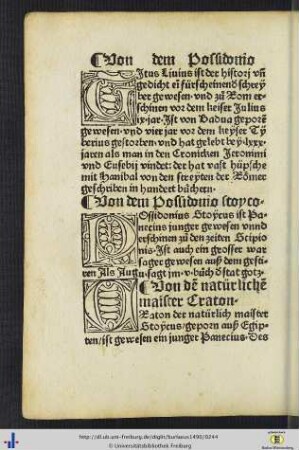 Von dem Possidonio
Titus Livius ist der histori vñ
gedicht eī fürscheinend schrey
ber gewesen · vnd zů Rom er-
schinen vor dem keiser Julius
ix · jar · Ist von Badua geporē
gewesen · vnd vier jar vor dem keyser Ty
berius gestorben · vnd hat gelebt bey · lxxx ·
jaren als man in den Cronicken Jeronimi
vnd Eusebij vindet: der hat vast hüpsche
mit Hanibal von den streyten der Römer
geschriben in hundert bůchern ·
Von dem Possidonio stoyco ·
Possidonius Stoycus ist Pa-
necius junger gewesen vnnd
erschinen zů den zeiten Scipio
nis · Ist auch ein grosser war
sager gewesen auß dem gesti
ren Als Augu · sagt jm · v · bůch dstat gotz ·
Von dē natürlichē
maister Craton ·
Raton der natürlich maister
Stoycus / geporn auß Egip-
ten / ist gewesen ein junger Panecius · Des
http://dl.ub.uni-freiburg.de/diglit/burlaeus1490/0244
© Universitätsbibliothek Freiburg